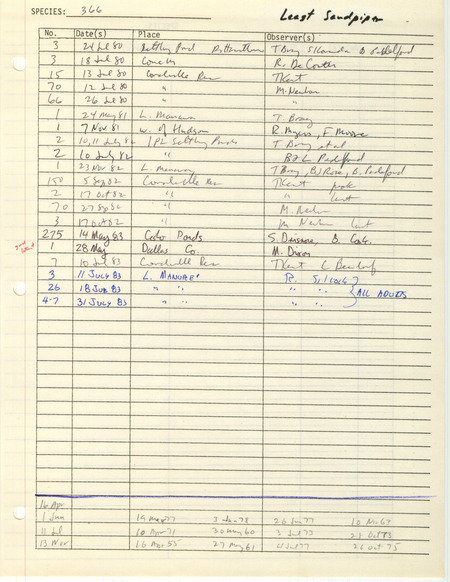 SPECIES: 366 Least Sandpiper
No. Date(s) Place Observer(s)
3 24 Jul 80 Settling Pond T Bray
3 18 Jul 80 R. DeCoster
15 13 Jul 80 Coralville Res TKent
70 12 Jul 80 " M. Newlon
66 26 Jul 80 " "
1 24 May 81 L. Manawa T. Bray
1 7 Nov 81 w. of Hudson R Myers, F. Moore
2 10,11 July 82 IPL Settling Ponds T Bray et al
2 10 July 82 " B+L Padelford
1 23 Nov 82 L. Manawa T Bray, BJ Rose, B. Padelford
150 5 Sep 82 Coralville Res TKent peak
2 17 Oct 82 " " last
70 27 Sep 82 " M. Newlon
3 17 Oct 82 " M Newlon last
275 14 May 83 Ponds S. Dinsmore, B.
1 28 May Dallas Co. M. Dixon
7 10 Jul 83 Coralville Res TKent C Bendorf
3 11 JULY 83 L. MANAWA R. SILCOCK
26 18 JUL 83 " " " " ALL ADULTS
4-7 31 JULY 83 " " " "
16 Apr
1 Jun 19 Mar 77 3 Jun 78 20 Jun 77 10 Nov 67
11 Jul 10 Apr 71 30 May 60 3 Jul 77 21 Oct 83
13 Nov 16 Apr 55 27 May 61 4 Jul 77 26 Oct 75